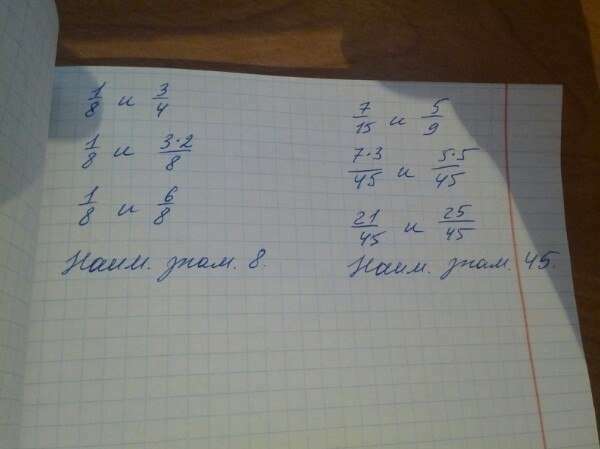 1/8 и 3/4
1/8 и 3·2/8
1/8 и 6/8
Наим. знам. 8.
7/15 и 5/9
7·3/45 и 5·5/45
21/45 и 25/45
Наим. знам. 45.